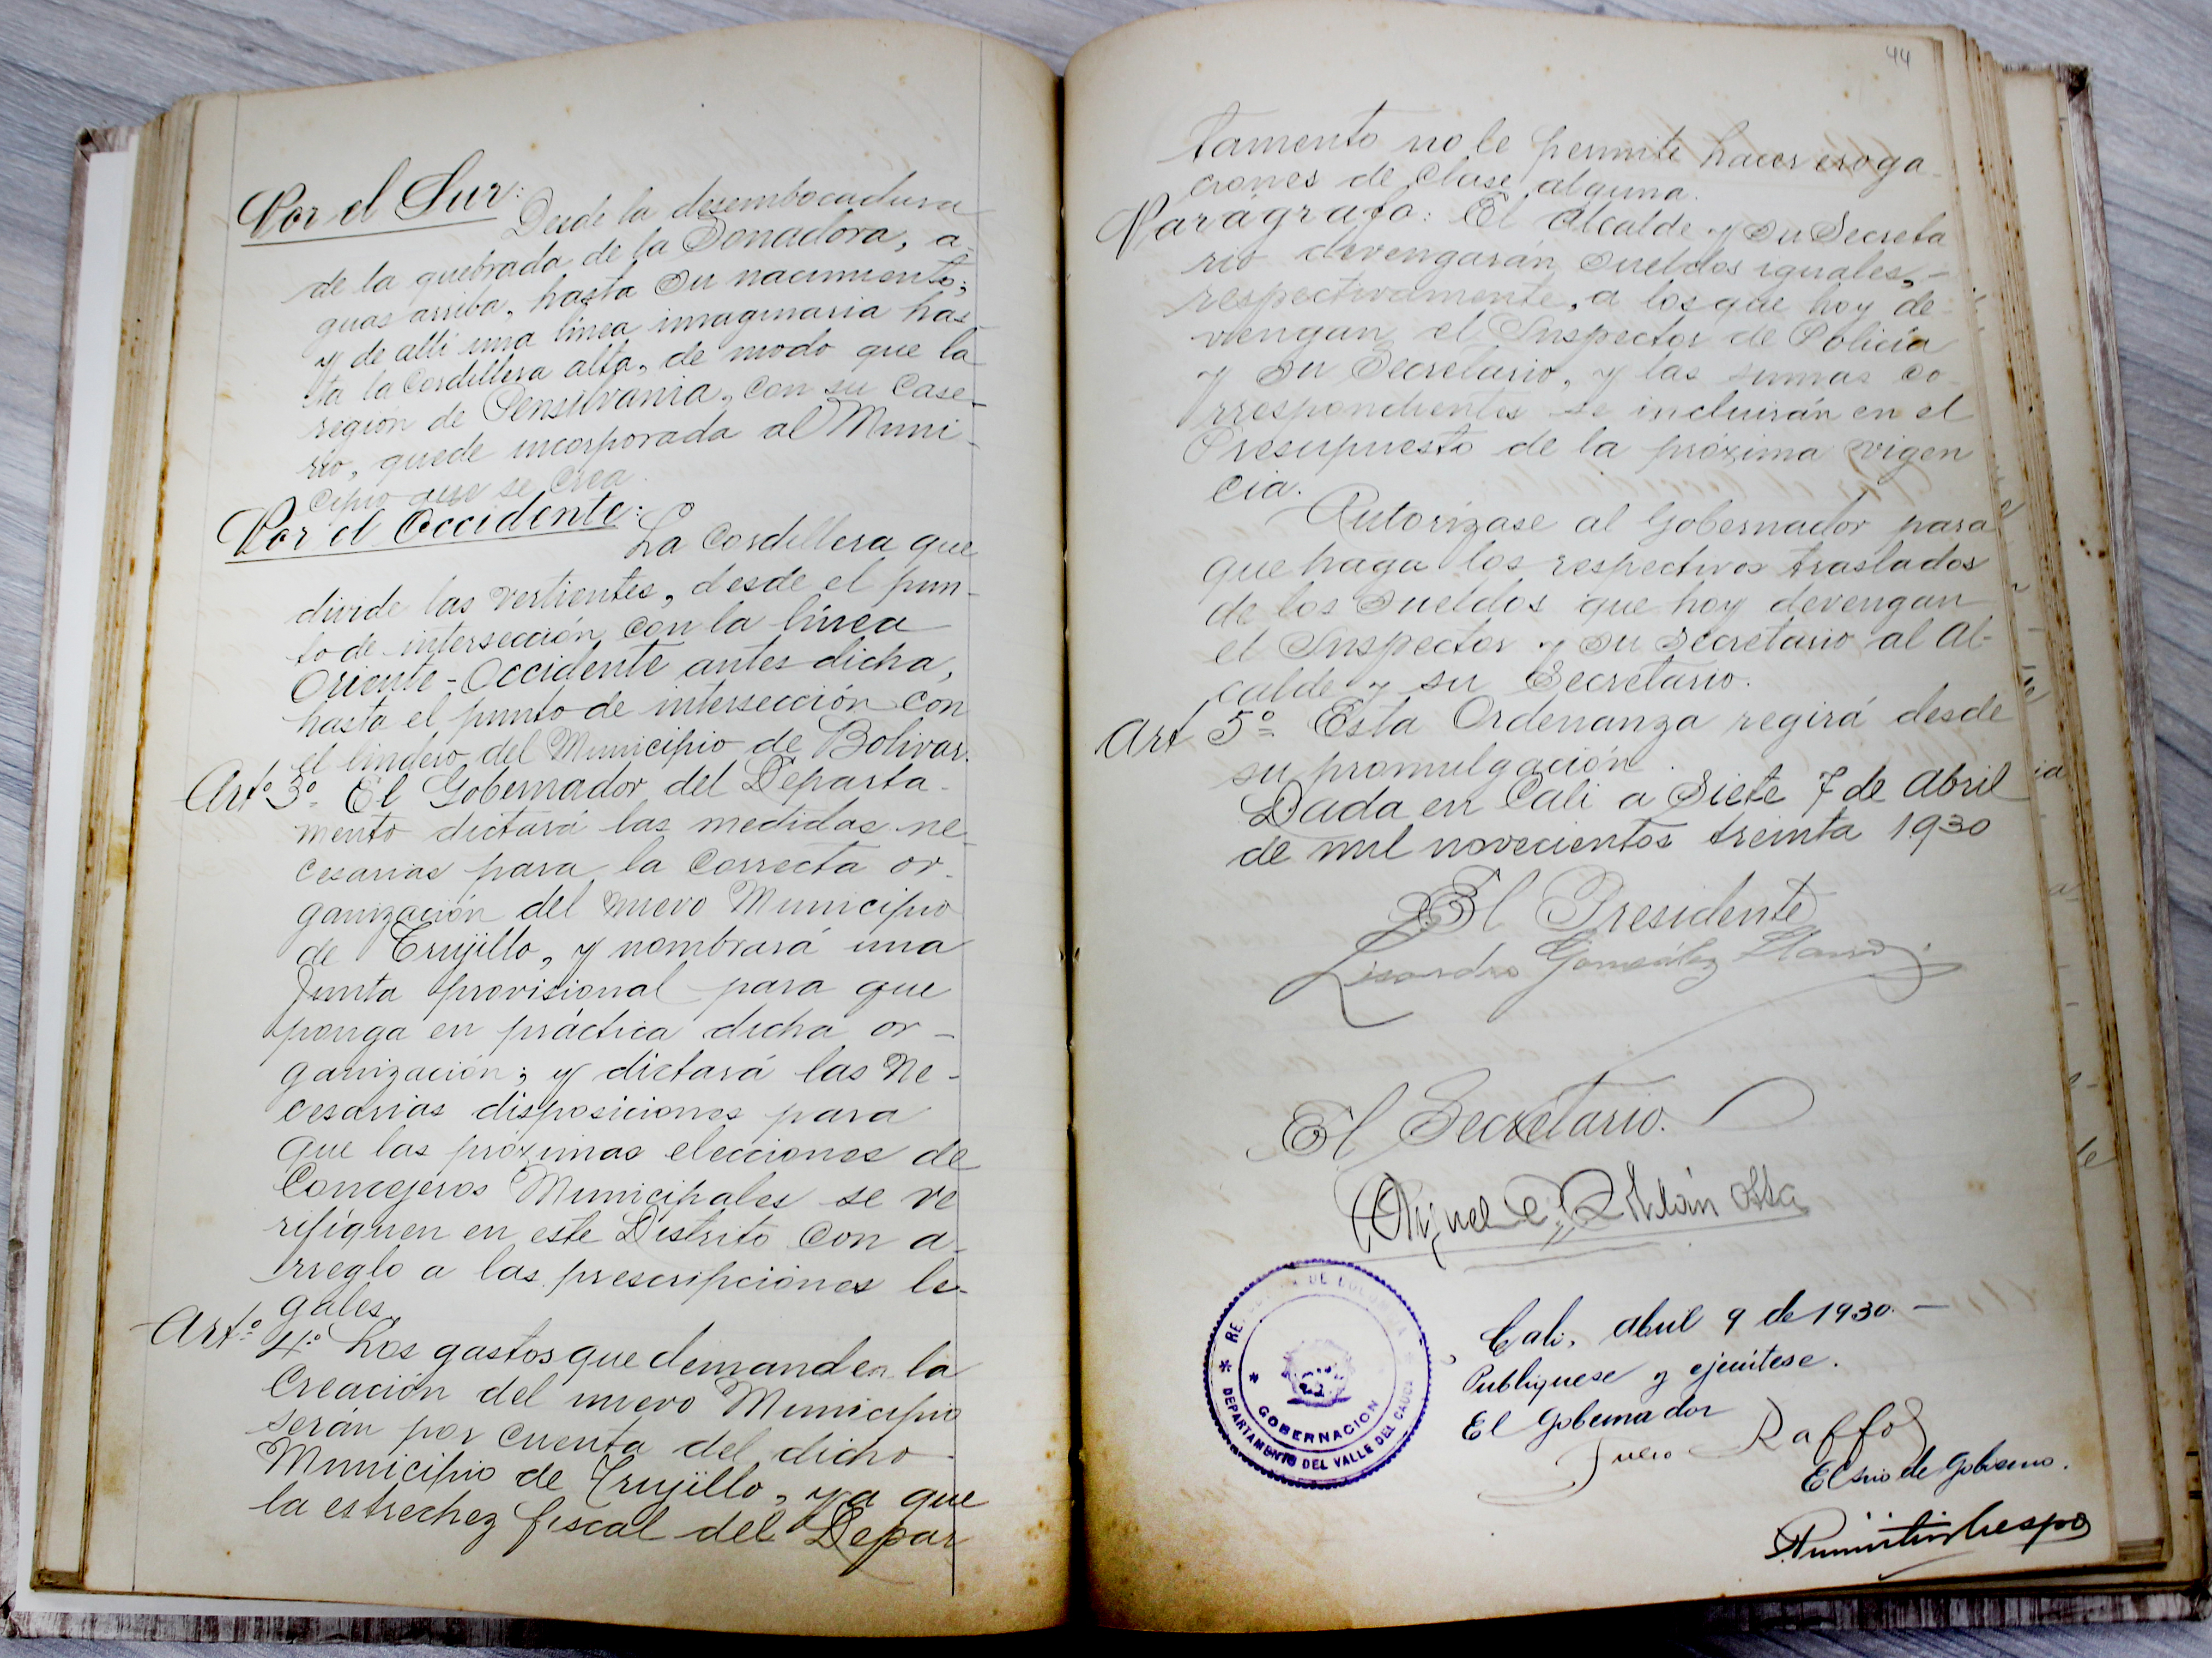 Por el Sur:
Desde la desembocadura
de la quebrada de la Sonadora, a-
guas arriba, hasta su nacimiento;
y de allí una línea imaginaria has-
ta la Cordillera alta, de modo que la
región de Pensilvania, con su Case-
río, quede incorporada al Muni-
cipio que se crea.
Por el Occidente:
La Cordillera que
divide las vertientes, desde el pun-
to de intersección con la línea
Oriente-Occidente antes dicha,
hasta el punto de intersección con
el lindero del Municipio de Bolivar.
Artº 3º El Gobernador del Departa-
mento dictará las medidas ne-
cesarias para la Correcta or-
ganización del nuevo Municipio
de Trujillo, y nombrará una
Junta provisional para que
ponga en práctica dicha or-
ganización; y dictará las Ne-
cesarias disposiciones para
que las próximas elecciones de
Concejeros Municipales se ve
rifíquen en este Distrito con a-
rreglo a las prescripciones le-
gales.
Artº 4º Los gastos que demanden la
Creación del nuevo Municipio
serán por cuenta del dicho
Municipio de Trujillo, ya que
la estrechez fiscal del Depar
44
tamento no le permite hacer eroga-
ciones de clase alguna.
Parágrafo: El Alcalde y su Secreta
rio devengarán sueldos iguales,-
respectivamente, a los que hoy de-
vengan el Inspector de Policía
y su Secretario, y las sumas co-
rrespondientes se incluirán en el
Presupuesto de la próxima vigen
cia.
Autorízase al Gobernador para
que haga los respectivos traslados
de los Sueldos que hoy devengan
el Inspector y su Secretario al Al-
calde y su Secretario.
Art 5º Esta Ordenanza regirá desde
su promulgación.
Dada en Cali a Siete 7 de Abril
de mil novecientos treinta 1930
El Presidente
Lisandro González
El Secretario.
REPUBLICA DE COLOMBIA
GOBERNACION
DEPARTAMENTO DEL VALLE DEL CAUCA
Cali, abril 9 de 1930.-
Publíquese y ejecútese.
El Gobernador
Raffo
El srio de Gobierno.